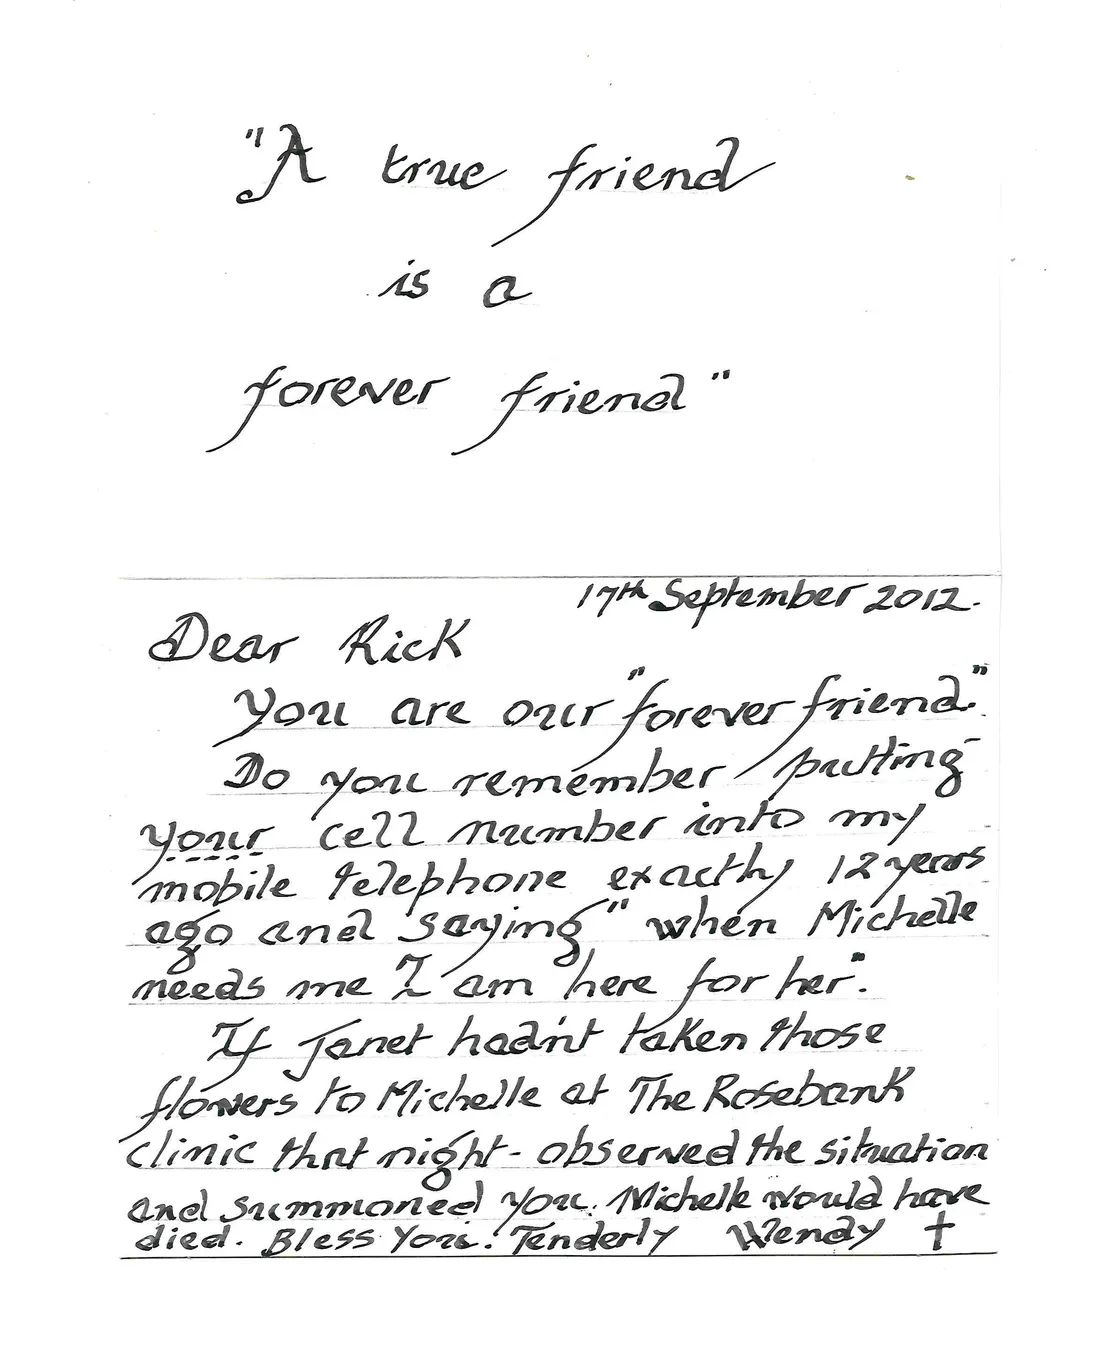 "A true friend
is a
forever friend"
17th September 2012.
Dear Rick
You are our "forever friend".
Do you remember putting
your cell number into my
mobile telephone exactly 12 years
ago and saying "when Michelle
needs me I am here for her".
If Janet hadn't taken those
flowers to Michelle at The Rosebank
clinic that night - observed the situation
and summoned you. Michelle would have
died. Bless You! Tenderly Wendy †